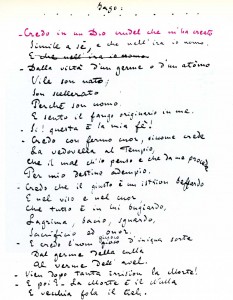 Jago:
- Credo in un Dio crudel che m'ha creato
Simile a sè, e che nell'ira io nomo.
E che nell'ira io nomo.
- Dalla viltà d'un germe o d'un atòmo
Vile son nato;
Son scellerato
Perchè son uomo.
E sento il fango originario in me.
- Sì! questa è la mia fè!
- Credo con fermo cuor, siccome crede
La vedovella al Tempio,
Che il mal ch'io penso e che da me procede
Per mio destino adempio.
- Credo che il giusto è un istrion beffardo
E nel viso e nel cuor,
Che tutto è in lui bugiardo,
Lagrima, bacio, sguardo,
Sacrificio ed onor.
- E credo l'uom giuoco d'iniqua sorte
Dal germe della culla
Al verme dell'avel.
- Vien dopo tanta irrision la Morte!
- E poi? - La Morte è il Nulla
E vecchia fola il Ciel.